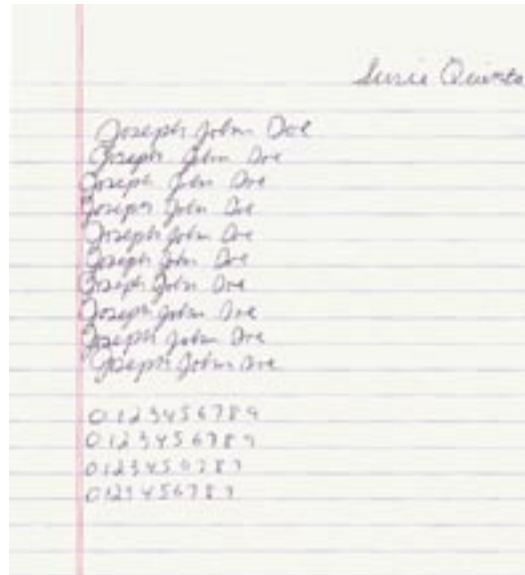 Susie
Joseph John Doe
Joseph John Doe
Joseph John Doe
Joseph John Doe
Joseph John Doe
Joseph John Doe
Joseph John Doe
Joseph John Doe
Joseph John Doe
Joseph John Doe
0123456789
0123456789
0123456789
0123456789